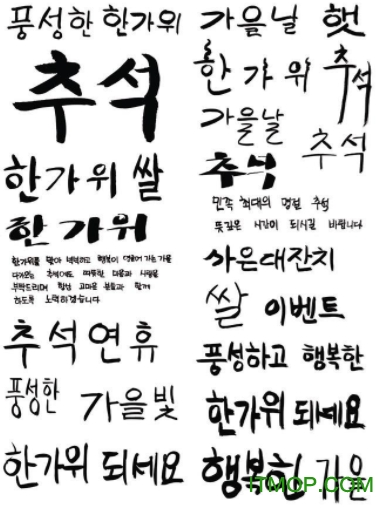 풍성한 한가위
추석
한가위 쌀
한가위
한가위를 맞아 넉넉하고 행복이 넝쿨어 가는 가을
다가오는 추석에도 따뜻한 마음과 사랑을
부탁드리며 항상 고마운 분들과 함께
하도록 노력하겠습니다
추석 연휴
풍성한
가을빛
한가위 되세요
가을날 햇
한가위 추석
가을날
추석
추석
민족 최대의 명절 추석
뜻깊은 시간이 되시길 바랍니다
사은대잔치
쌀 이벤트
풍성하고 행복한
한가위 되세요
행복한 가을
ITMOP.COM